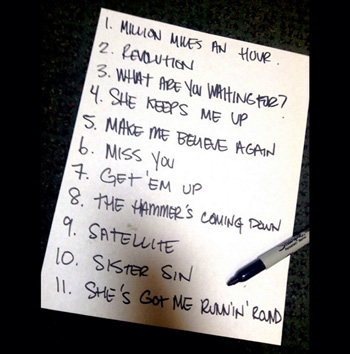 1. MILLION MILES AN HOUR.
2. REVOLUTION
3. WHAT ARE YOU WAITING FOR?
4. SHE KEEPS ME UP
5. MAKE ME BELIEVE AGAIN
6. MISS YOU
7. GET 'EM UP
8. THE HAMMER'S COMING DOWN
9. SATELLITE
10. SISTER SIN
11. SHE'S GOT ME RUNNIN' ROUND